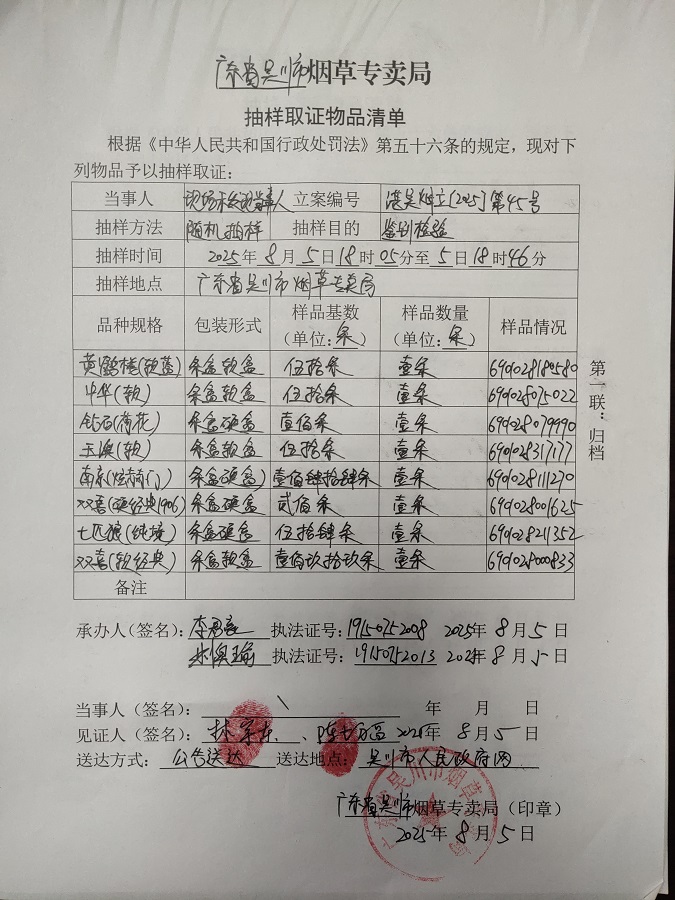 广东省吴川市烟草专卖局
抽样取证物品清单
根据《中华人民共和国行政处罚法》第五十六条的规定，现对下
列物品予以抽样取证：
当事人 现场未发现当事人 立案编号 湛吴烟立[2025]第45号
抽样方法 随机抽样 抽样目的 鉴别检验
抽样时间 2025年8月5日18时05分至5日18时46分
抽样地点 广东省吴川市烟草专卖局
品种规格 包装形式 样品基数（单位：条） 样品数量（单位：条） 样品情况
黄鹤楼(软蓝) 条盒软盒 伍拾条 壹条 6901028184580
中华(软) 条盒软盒 伍拾条 壹条 6901028075022
钻石(荷花) 条盒硬盒 壹佰条 壹条 6901028079990
玉溪(软) 条盒软盒 伍拾条 壹条 6901028317177
南京(炫赫门) 条盒硬盒 壹佰肆拾肆条 壹条 6901028111270
双喜(硬经典1906) 条盒硬盒 贰佰条 壹条 6901028001625
七匹狼(纯境) 条盒硬盒 伍拾肆条 壹条 6901028211352
双喜(软经典) 条盒软盒 壹佰玖拾玖条 壹条 6901028000833
备注
第一联：归档
承办人（签名）： 执法证号：19150752008 2025年8月5日
执法证号：19150752013 2025年8月5日
当事人（签名）：\ 年 月 日
见证人（签名）：林 、陈 2025年8月5日
送达方式：公告送达 送达地点：吴川市人民政府网
广东省吴川市烟草专卖局（印章）
2025年8月5日
广东省吴川市烟草专卖局